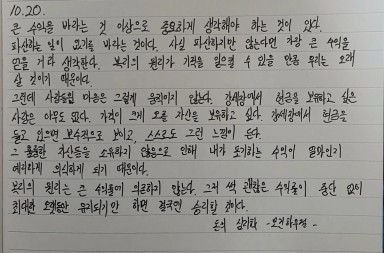 10.20.
큰 수익을 바라는 것 이상으로 중요하게 생각해야 하는 것이 있다.
파산하는 일이 없기를 바라는 것이다. 사실 파산하지만 않는다면 가장 큰 수익을
얻을 거라 생각한다. 복리의 원리가 기적을 일으킬 수 있을 만큼 우리는 오래
살 것이기 때문이다.
그런데 사람들의 마음은 그렇게 움직이지 않는다. 강세장에서 현금을 보유하고 싶은
사람은 아무도 없다. 가격이 크게 오를 자산을 보유하고 싶다. 강세장에서 현금을
들고 있으면 보수적으로 보이고, 스스로도 그런 느낌이 든다.
그 훌륭한 자산들을 소유하지 않음으로 인해 내가 포기하는 수익이 얼마인지
예리하게 의식하게 되기 때문이다.
복리의 원리는 큰 수익률에 의존하지 않는다. 그저 썩 괜찮은 수익률이 중단 없이
최대한 오랫동안 유지되기만 하면 결국엔 승리할 것이다.
돈의 심리학 -모건하우절-